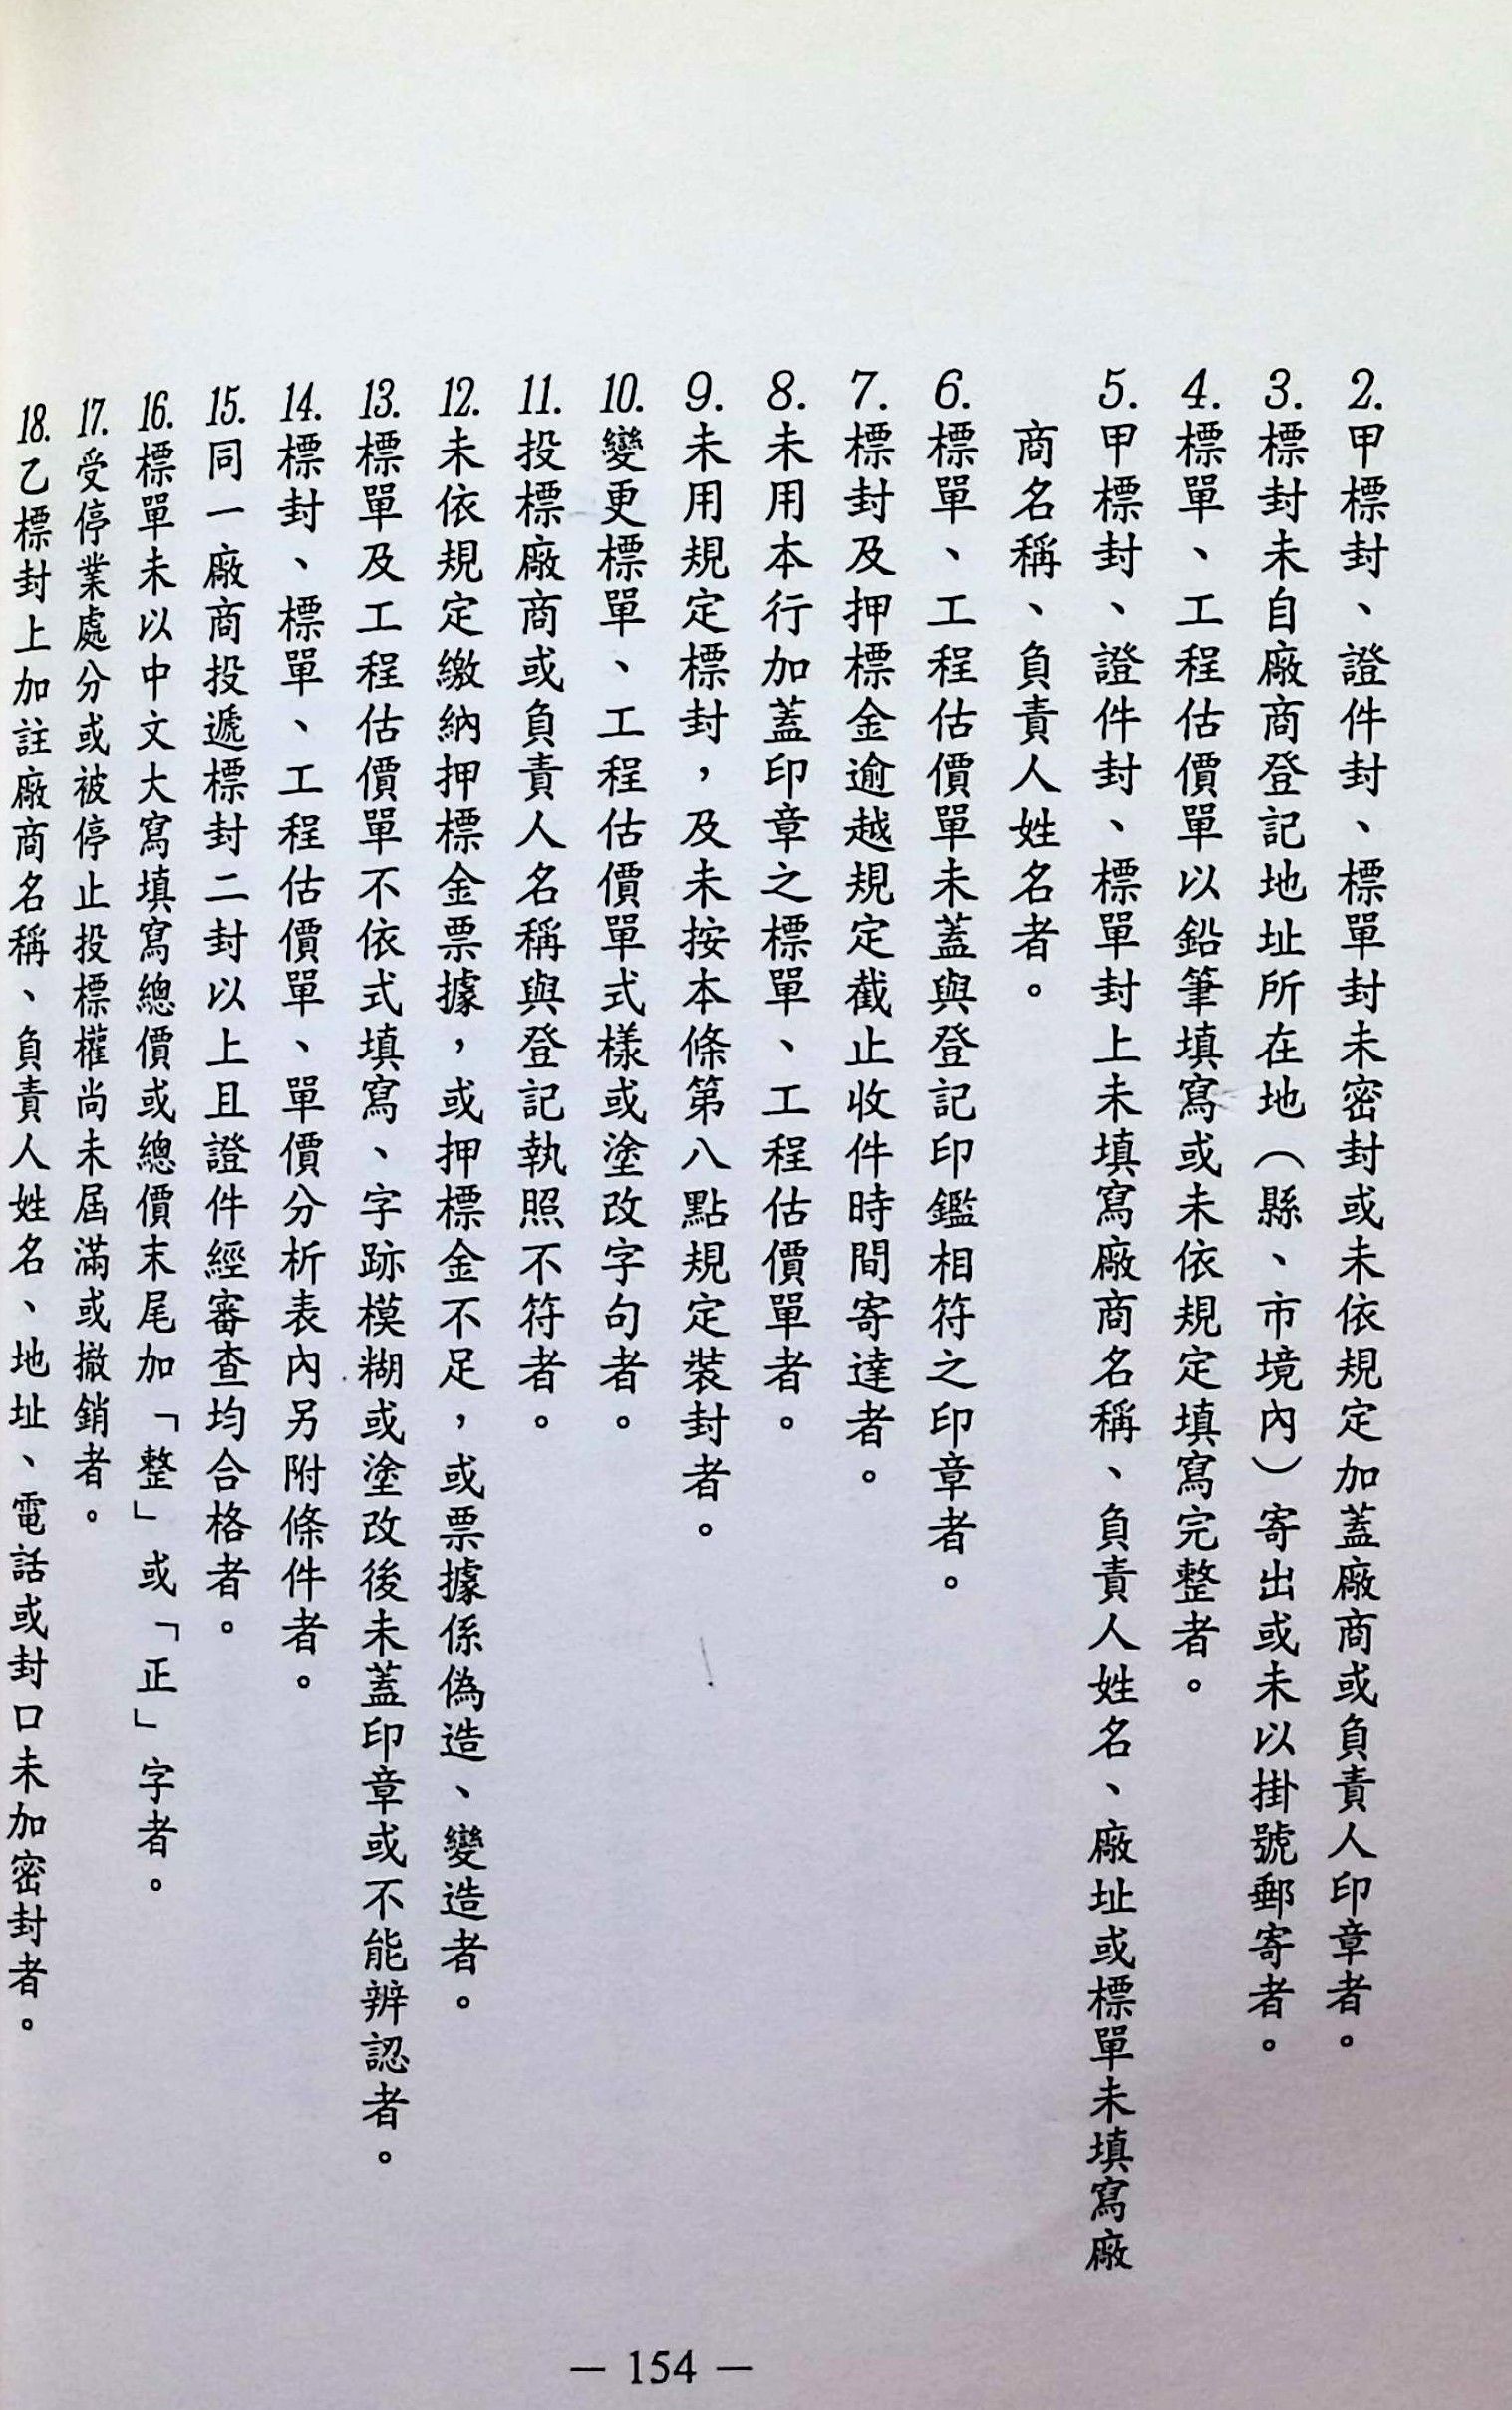 2.甲標封、證件封、標單封未密封或未依規定加蓋廠商或負責人印章者。
3.標封未自廠商登記地址所在地（縣、市境內）寄出或未以掛號郵寄者。
4.標單、工程估價單以鉛筆填寫或未依規定填寫完整者。
5.甲標封、證件封、標單封上未填寫廠商名稱、負責人姓名、廠址或標單未填寫廠
商名稱、負責人姓名者。
6.標單、工程估價單未蓋與登記印鑑相符之印章者。
7.標封及押標金逾越規定截止收件時間寄達者。
8.未用本行加蓋印章之標單、工程估價單者。
9.未用規定標封，及未按本條第八點規定裝封者。
10.變更標單、工程估價單式樣或塗改字句者。
11.投標廠商或負責人名稱與登記執照不符者。
12.未依規定繳納押標金票據，或押標金不足，或票據係偽造、變造者。
13.標單及工程估價單不依式填寫、字跡模糊或塗改後未蓋印章或不能辨認者。
14.標封、標單、工程估價單、單價分析表內另附條件者。
15.同一廠商投遞標封二封以上且證件經審查均合格者。
16.標單未以中文大寫填寫總價或總價末尾加「整」或「正」字者。
17.受停業處分或被停止投標權尚未屆滿或撤銷者。
18.乙標封上加註廠商名稱、負責人姓名、地址、電話或封口未加密封者。
— 154 —